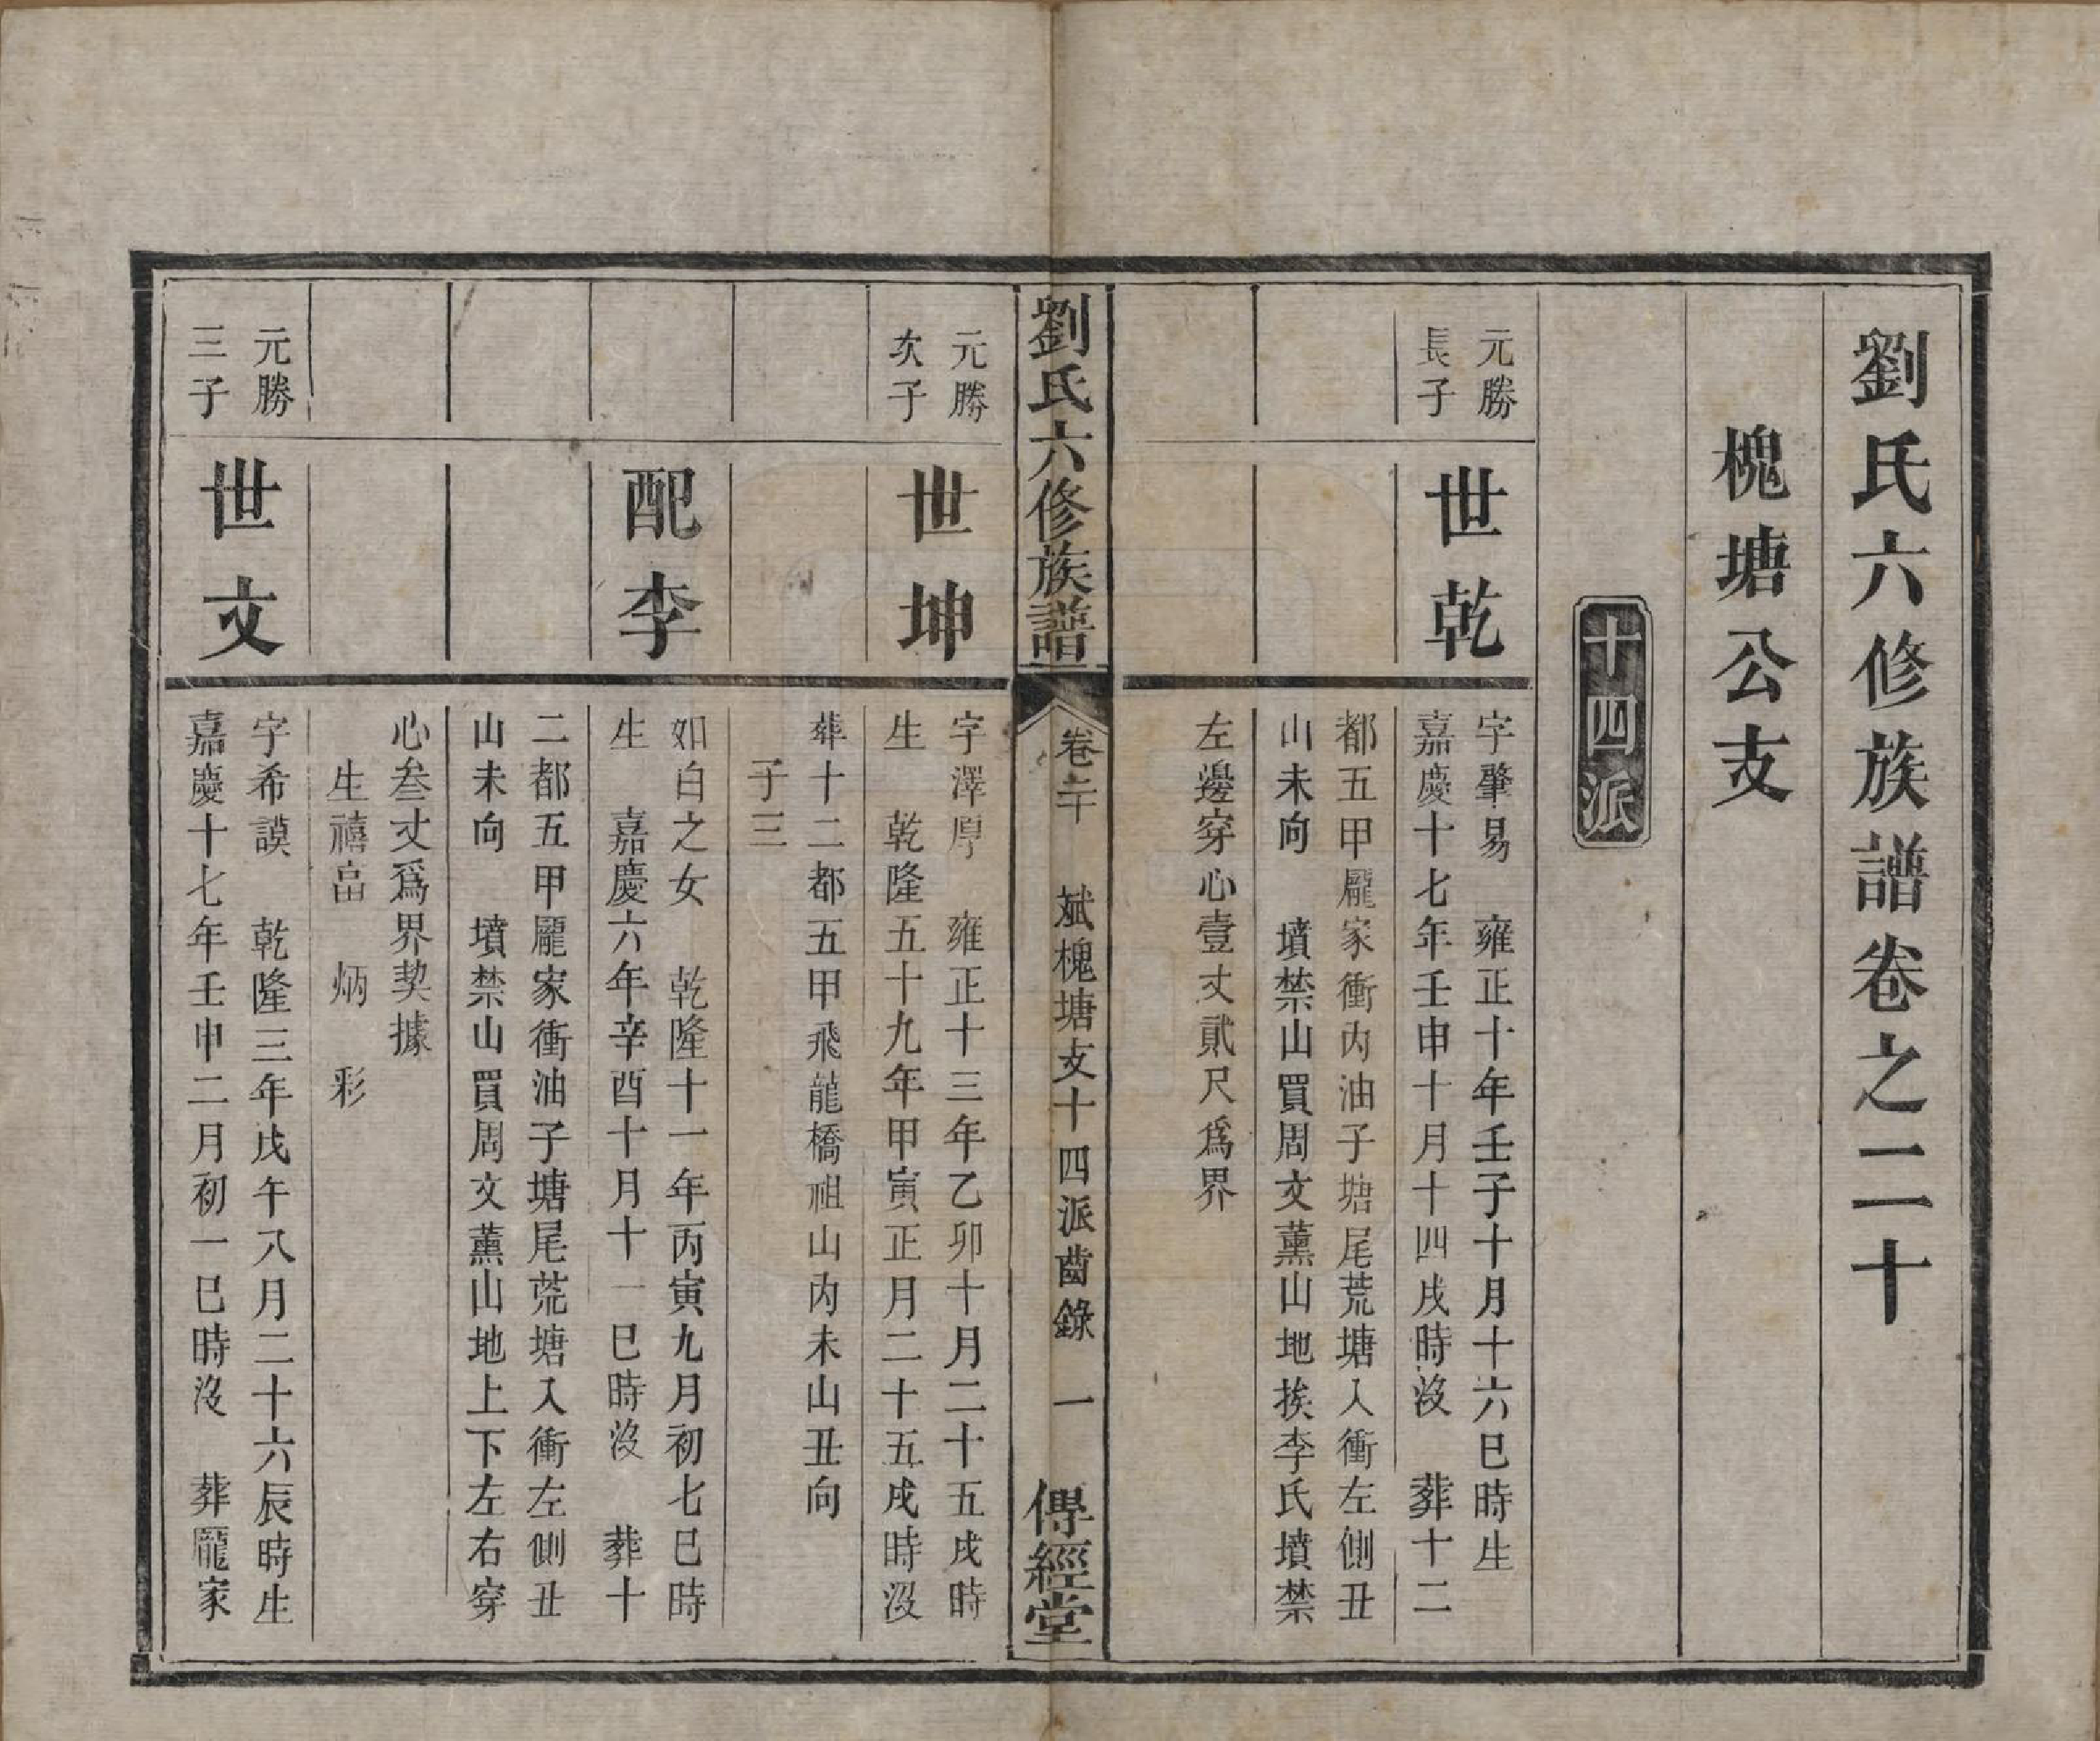 劉氏六修族譜卷之二十
槐塘公支
十四派
元勝
長子
世乾
字肇易　雍正十年壬子十月十六巳時生
嘉慶十七年壬申十月十四戌時沒　葬十二
都五甲龎家衝內油子塘尾荒塘入衝左側丑
山未向　墳禁山買周文薰山地挨李氏墳禁
左邊穿心壹丈貳尺爲界
劉氏六修族譜
卷二十
斌槐塘支十四派齒錄
一
傳經堂
元勝
次子
世坤
字澤厚　雍正十三年乙卯十月二十五戌時
生　乾隆五十九年甲寅正月二十五戌時沒
葬十二都五甲飛龍橋祖山內未山丑向
子三
配李
如白之女　乾隆十一年丙寅九月初七巳時
生　嘉慶六年辛酉十月十一巳時沒　葬十
二都五甲龎家衝油子塘尾荒塘入衝左側丑
山未向　墳禁山買周文薰山地上下左右穿
心叁丈爲界契據
生禧畗　炳　彩
元勝
三子
世文
字希謨　乾隆三年戊午八月二十六辰時生
嘉慶十七年壬申二月初一巳時沒　葬龎家